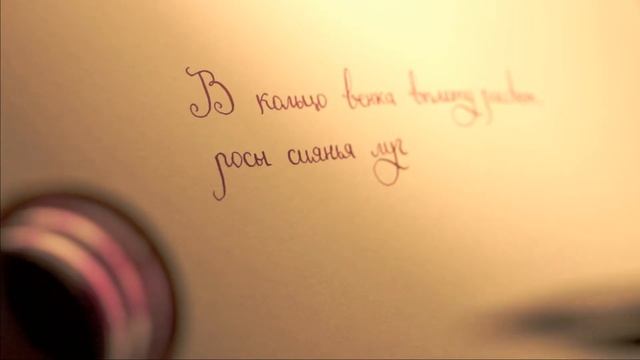 В кольцо венка вплету
росы сиянья луг